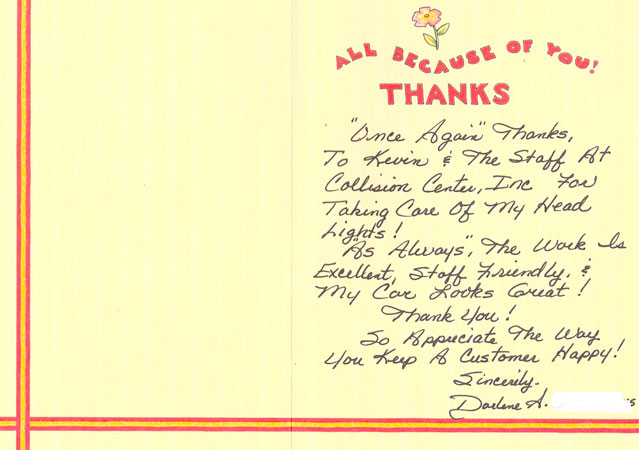 ALL BECAUSE OF YOU!
THANKS
"Once Again" Thanks,
To Kevin & The Staff At
Collision Center, Inc For
Taking Care Of My Head
Lights!
"As Always", The Work Is
Excellent, Staff Friendly, &
My Car Looks Great!
Thank You!
So Appreciate The Way
You Keep A Customer Happy!
Sincerily.
Darlene A.